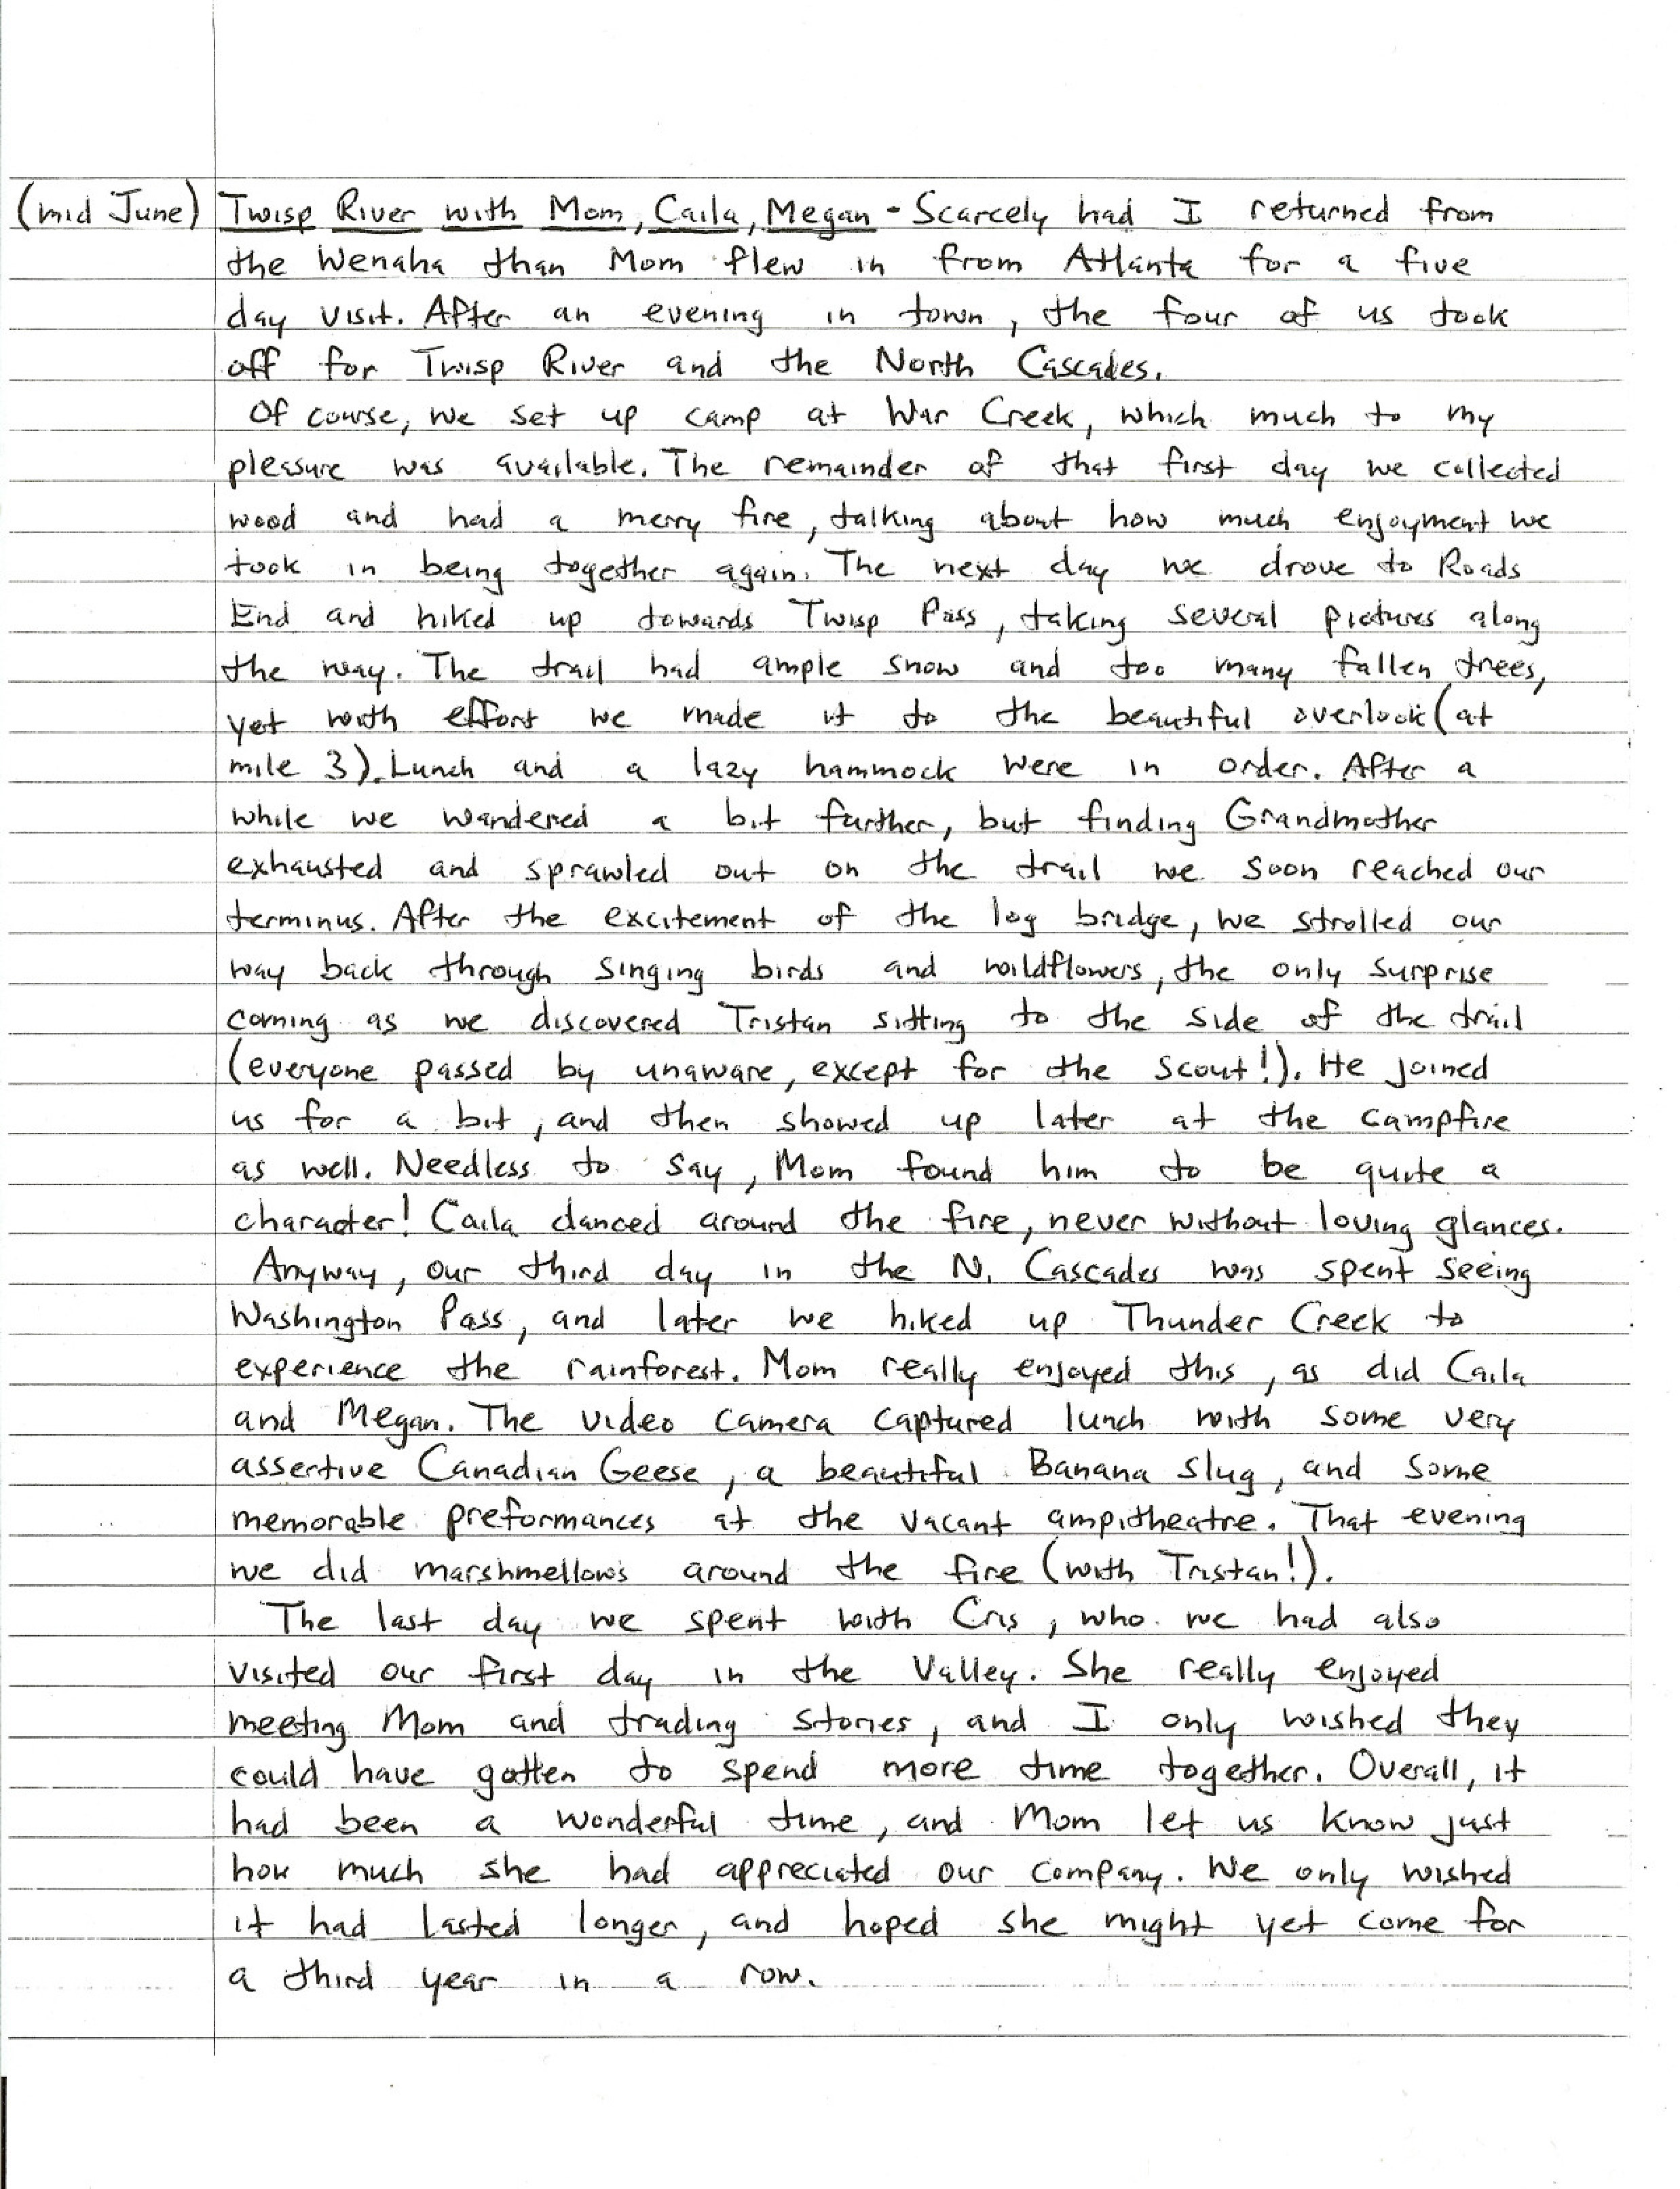 (mid June) Twisp River with Mom, Caila, Megan - Scarcely had I returned from
the Wenaha than Mom flew in from Atlanta for a five
day visit. After an evening in town, the four of us took
off for Twisp River and the North Cascades.
Of course, we set up camp at War Creek, which much to my
pleasure was available. The remainder of that first day we collected
wood and had a merry fire, talking about how much enjoyment we
took in being together again. The next day we drove to Roads
End and hiked up towards Twisp Pass, taking several pictures along
the way. The trail had ample snow and too many fallen trees,
yet with effort we made it to the beautiful overlook (at
mile 3). Lunch and a lazy hammock were in order. After a
while we wandered a bit further, but finding Grandmother
exhausted and sprawled out on the trail we soon reached our
terminus. After the excitement of the log bridge, we strolled our
way back through singing birds and wildflowers, the only surprise
coming as we discovered Tristan sitting to the side of the trail
(everyone passed by unaware, except for the scout!). He joined
us for a bit, and then showed up later at the campfire
as well. Needless to say, Mom found him to be quite a
character! Caila danced around the fire, never without loving glances.
Anyway, our third day in the N. Cascades was spent seeing
Washington Pass, and later we hiked up Thunder Creek to
experience the rainforest. Mom really enjoyed this, as did Caila
and Megan. The video camera captured lunch with some very
assertive Canadian Geese, a beautiful Banana Slug, and some
memorable preformances at the vacant ampitheatre. That evening
we did marshmellows around the fire (with Tristan!).
The last day we spent with Cris, who we had also
visited our first day in the Valley. She really enjoyed
meeting Mom and trading stories, and I only wished they
could have gotten to spend more time together. Overall, it
had been a wonderful time, and Mom let us know just
how much she had appreciated our company. We only wished
it had lasted longer, and hoped she might yet come for
a third year in a row.